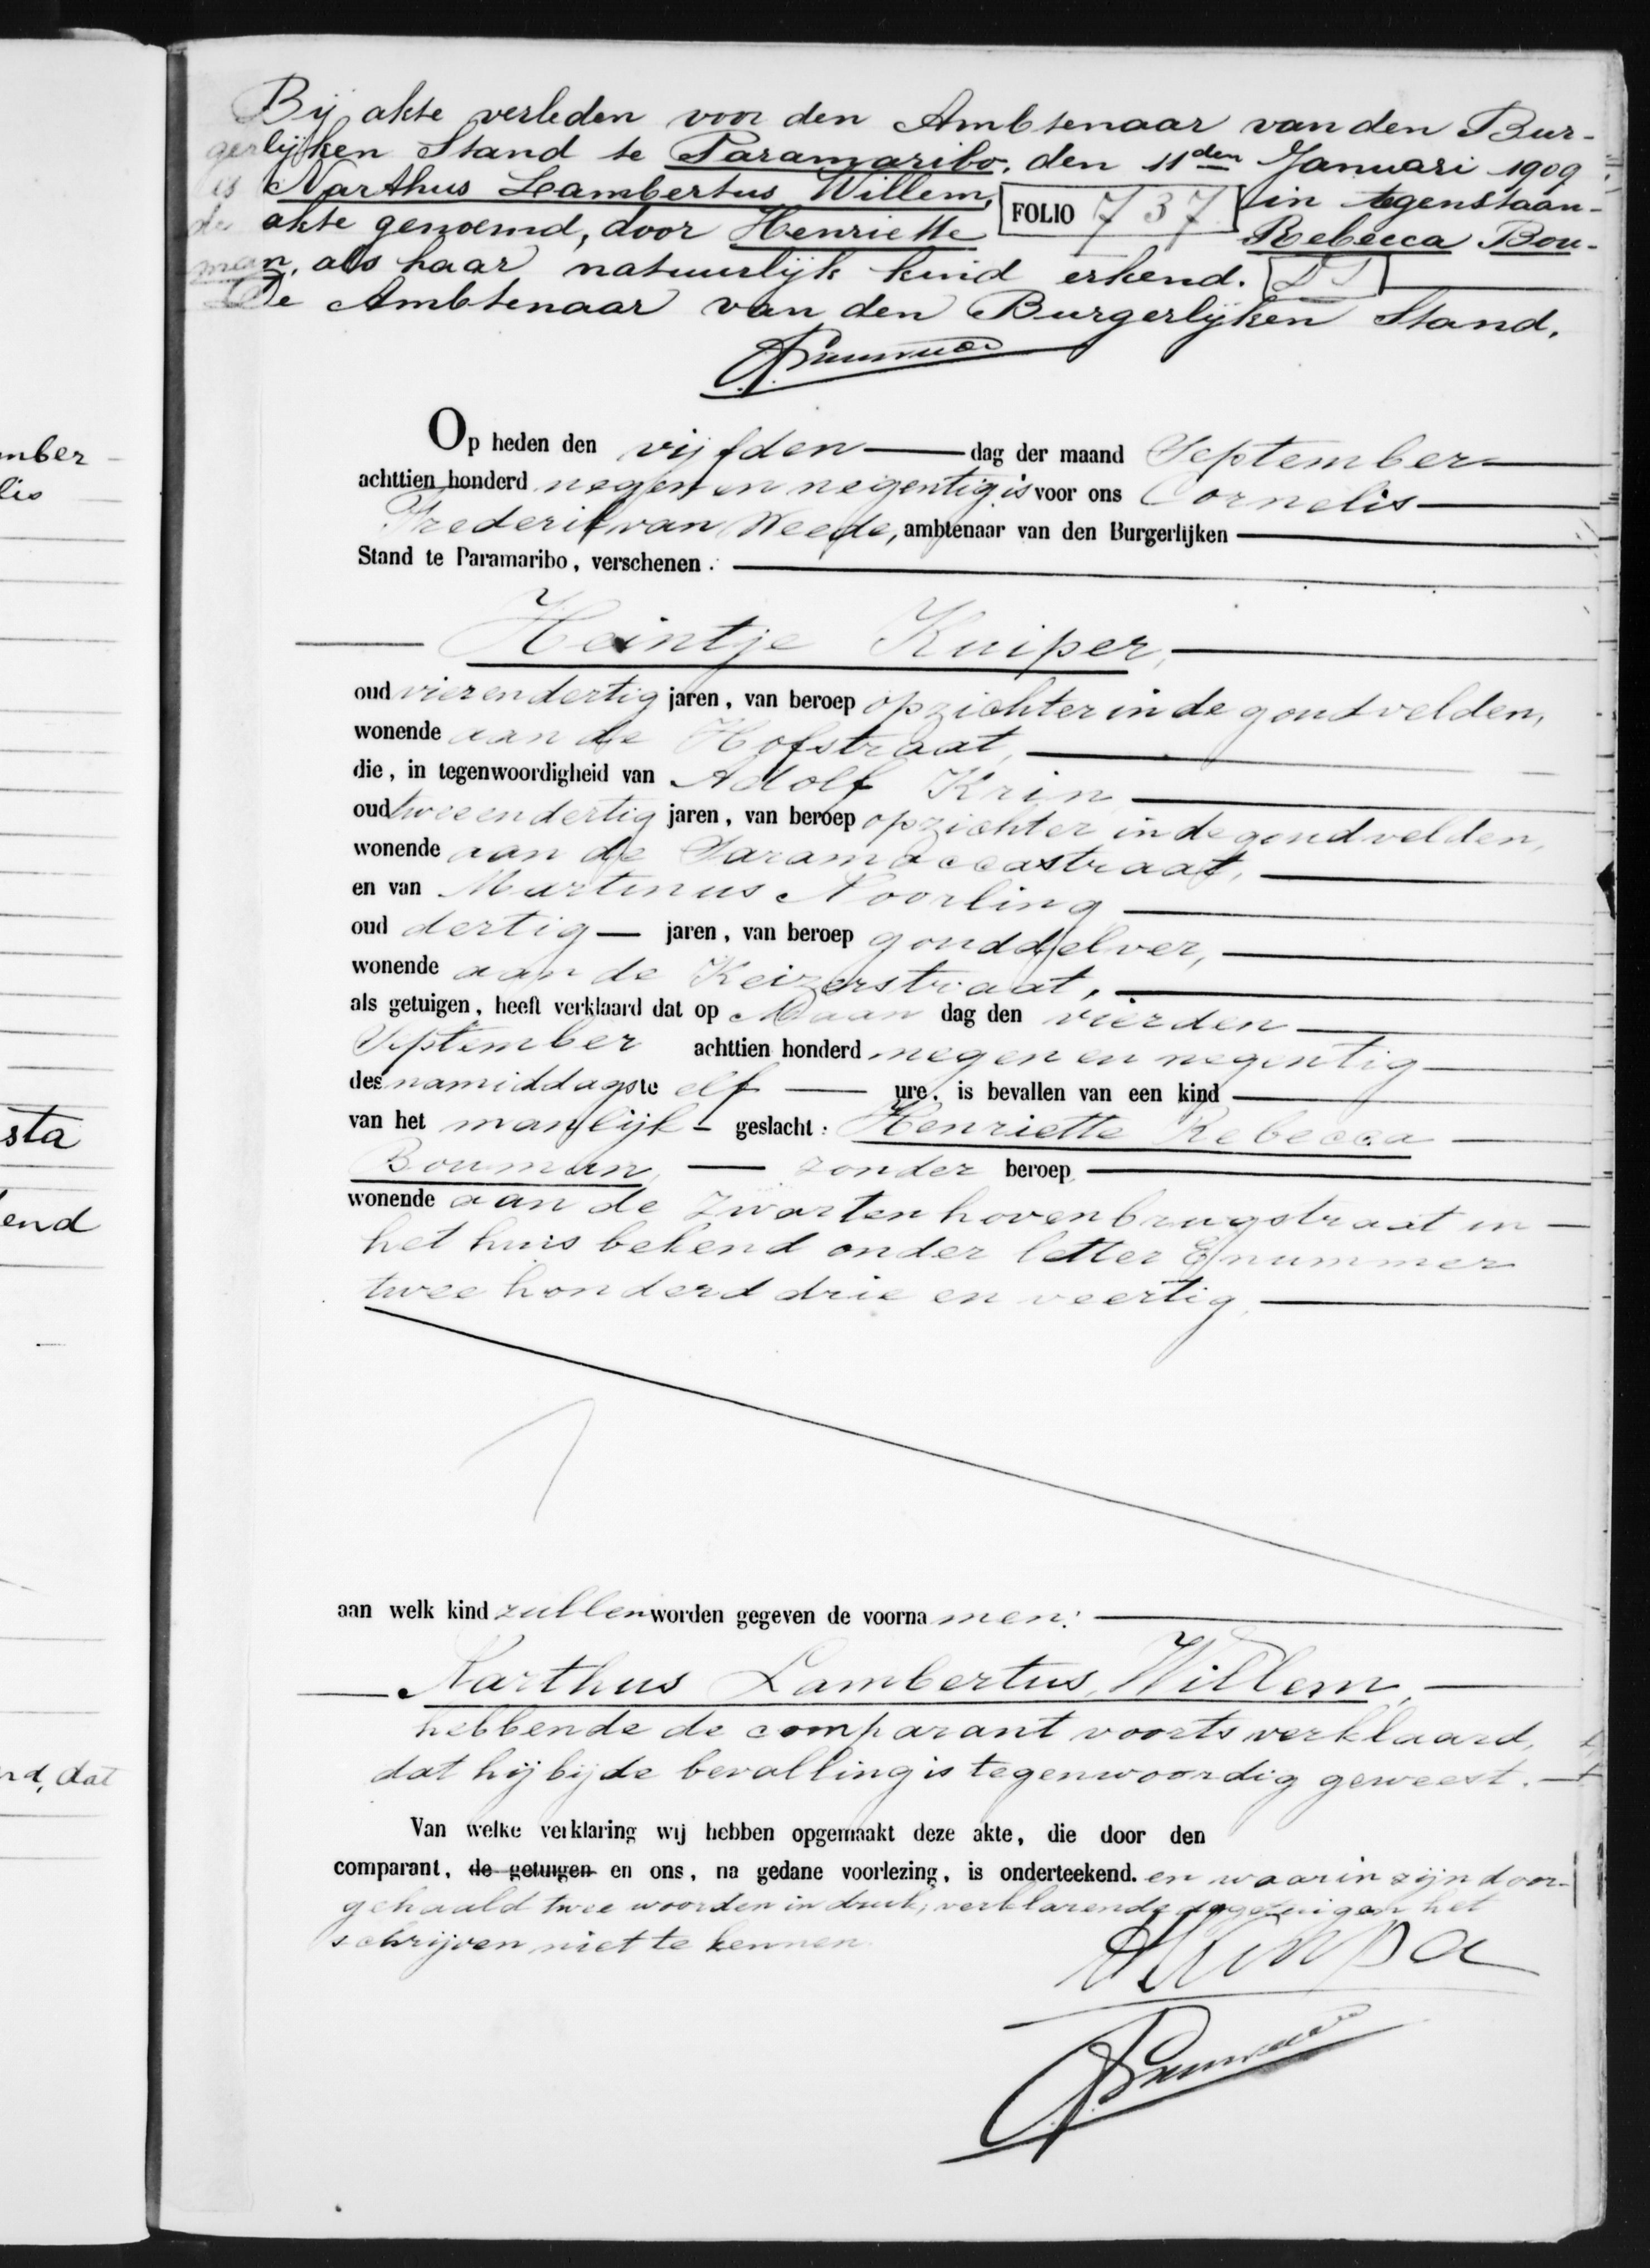 Bij akte verleden voor den Ambtenaar van den Bur-
gerlijken Stand te Paramaribo, den 11den Januari 1909
is Narthus Lambertus Willem, in tegenstaan-
FOLIO 737
de akte genoemd, door Henriette Rebecca Bou-
man, als haar natuurlijk kind erkend.
De Ambtenaar van den Burgerlijken Stand,
Op heden den vijfden dag der maand September
achttien honderd negen en neigentig is voor ons Cornelis
Frederik van Weede, ambtenaar van den Burgerlijken
Stand te Paramaribo, verschenen:
Heintje Kuiper,
oud vier en dertig jaren, van beroep opzichter in de goudvelden,
wonende aan de Hofstraat,
die, in tegenwoordigheid van Adolf Krin
oud twee en dertig jaren, van beroep opzichter in de goudvelden,
wonende aan de Saramaccastraat,
en van Martinus Noorling
oud dertig jaren, van beroep gouddelver,
wonende aan de Keizerstraat,
als getuigen, heeft verklaard dat op Maan dag den vierden
September achttien honderd negen en negentig
des namiddags te elf ure, is bevallen van een kind
van het manlijk geslacht: Henriette Rebecca
Bouman, zonder beroep
wonende aan de Zwartenhovenbrugstraat in
het huis bekend onder letter E nummer
twee honderd drie en veertig,
aan welk kind zullen worden gegeven de voorna men:
Narthus Lambertus, Willem,
hebbende de comparant voorts verklaard,
dat hij bij de bevalling is tegenwoordig geweest.
Van welke verklaring wij hebben opgemaakt deze akte, die door den
comparant, de getuigen en ons, na gedane voorlezing, is onderteekend. en waarin zijn door-
gehaald twee woorden in druk, verklarende de getuigen het
schrijven niet te kennen
mber
lis
sta
end
rd, dat